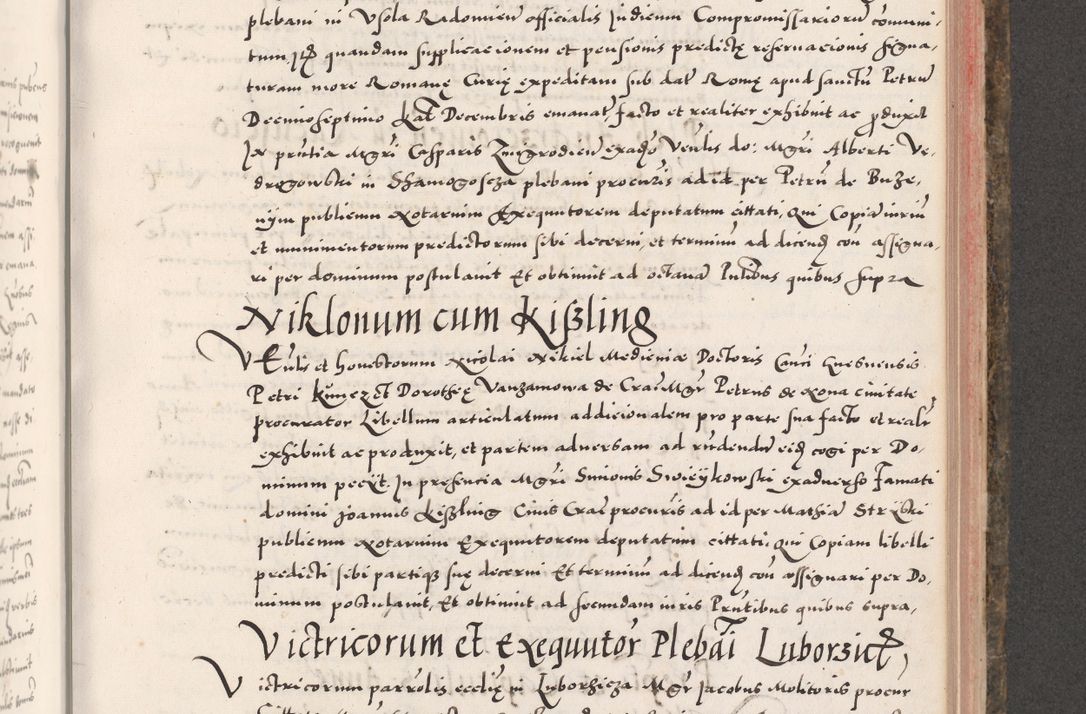 plebani in Vsola Radomien officialis Judicum Compromissariorum communi-
tum, Itẽ quandam supplicacionem et pensionis predictę reseruacionis signa-
turam more Romanę Curię expeditam sub dat Romę apud sanctũ Petrũ
Decimoseptimo Kal Decembris emanat facto et realiter exhibuit ac produxit
In pñtia Mgri Casparis Zmigrodien exaduo Venlis do: Mgri Alberti Ve-
dregowski in Szamogoscza plebani procuris ad id per Petrũ de Buze-
nijm publicum Notarium Exequutorem deputatum cittati, Qui Copiã iuriũ
et munimentorum predictorum sibi decerni, et terminũ ad dicend con assigna-
ri per dominum postulauit Et obtinuit ad octauã Pñtibus quibus supra
Niklonum cum Kißling
Venlis et honestorum Nicolai Nekiel Medicinæ Doctoris Canci Gnesnensis
Petri Kunczet Dorotheę Vanzamowa de Crac Mgr Petrus de Xona ciuitate
procurator Libellum articulatum addicionalem pro parte sua facto et realr
exhibuit ac produxit, et partem aduersam ad rñdendũ eid cogi per Do-
minum pecijt. In presencia Mgri Simonis Swieijkowski exaduerso Famati
domini Joannis Kißling Ciuis Crac procuris ad id per Mathiã Strzski
publicum Notarium Exequutorem deputatum cittati, Qui Copiam libelli
predicti sibi partiq suę decerni Et terminũ ad dicend con assignari per Do-
minum postulauit, Et obtinuit ad secundam iuris Pñtibus quibus supra,
Victricorum et Exequutor Plebãi Luborzict,
Victricorum parrolis eccliæ in Luborzicza Mgr Jacobus Molitoris procur